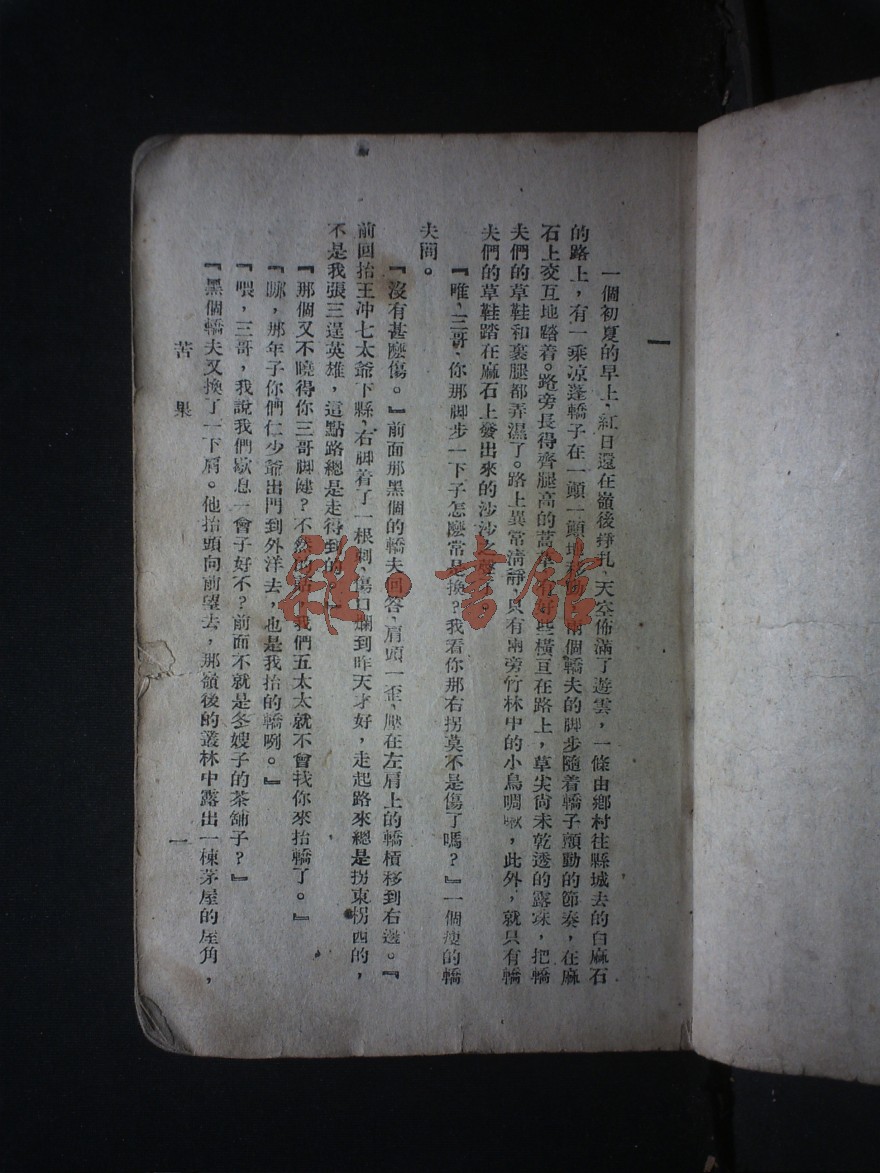 一
一個初夏的早上、紅日還在嶺後掙扎、天空佈滿了遊雲，一條由鄉村往縣城去的白麻石
的路上，有一乘凉蓬轎子在一顛一顛地移動，兩個轎夫的脚步隨着轎子顫動的節奏，在麻
石上交互地踏着。路旁長得齊腿高的蒿草有好些橫亘在路上，草尖尚未乾透的露珠，把轎
夫們的草鞋和裹腿都弄濕了。路上異常清靜、只有兩旁竹林中的小鳥啁啾，此外，就只有轎
夫們的草鞋踏在麻石上發出來的沙沙之聲了。
『唯、三哥、你那脚步一下子怎麼常是換？我看你那右拐莫不是傷了嗎？』一個瘦的轎
夫問。
『沒有甚麼傷。』前面那黑個的轎夫回答、肩頭一歪、壓在左肩上的轎槓移到右邊。『
前回抬王冲七太爺下縣、右脚着了一根刺、傷口爛到昨天才好，走起路來總是拐東拐西的，
不是我張三逞英雄，這點路總是走得到的。』
『那個又不曉得你三哥脚健？不然的話，我們五太太就不會找你來抬轎了。』
『哪，那年子你們仁少爺出門到外洋去，也是我抬的轎咧。』
『喂，三哥，我說我們歇息一會子好不？前面不就是冬嫂子的茶舖子？』
『黑個轎夫又換了一下肩。他抬頭向前望去，那嶺後的叢林中露出一棟茅屋的屋角，
苦果
一
雜·書館